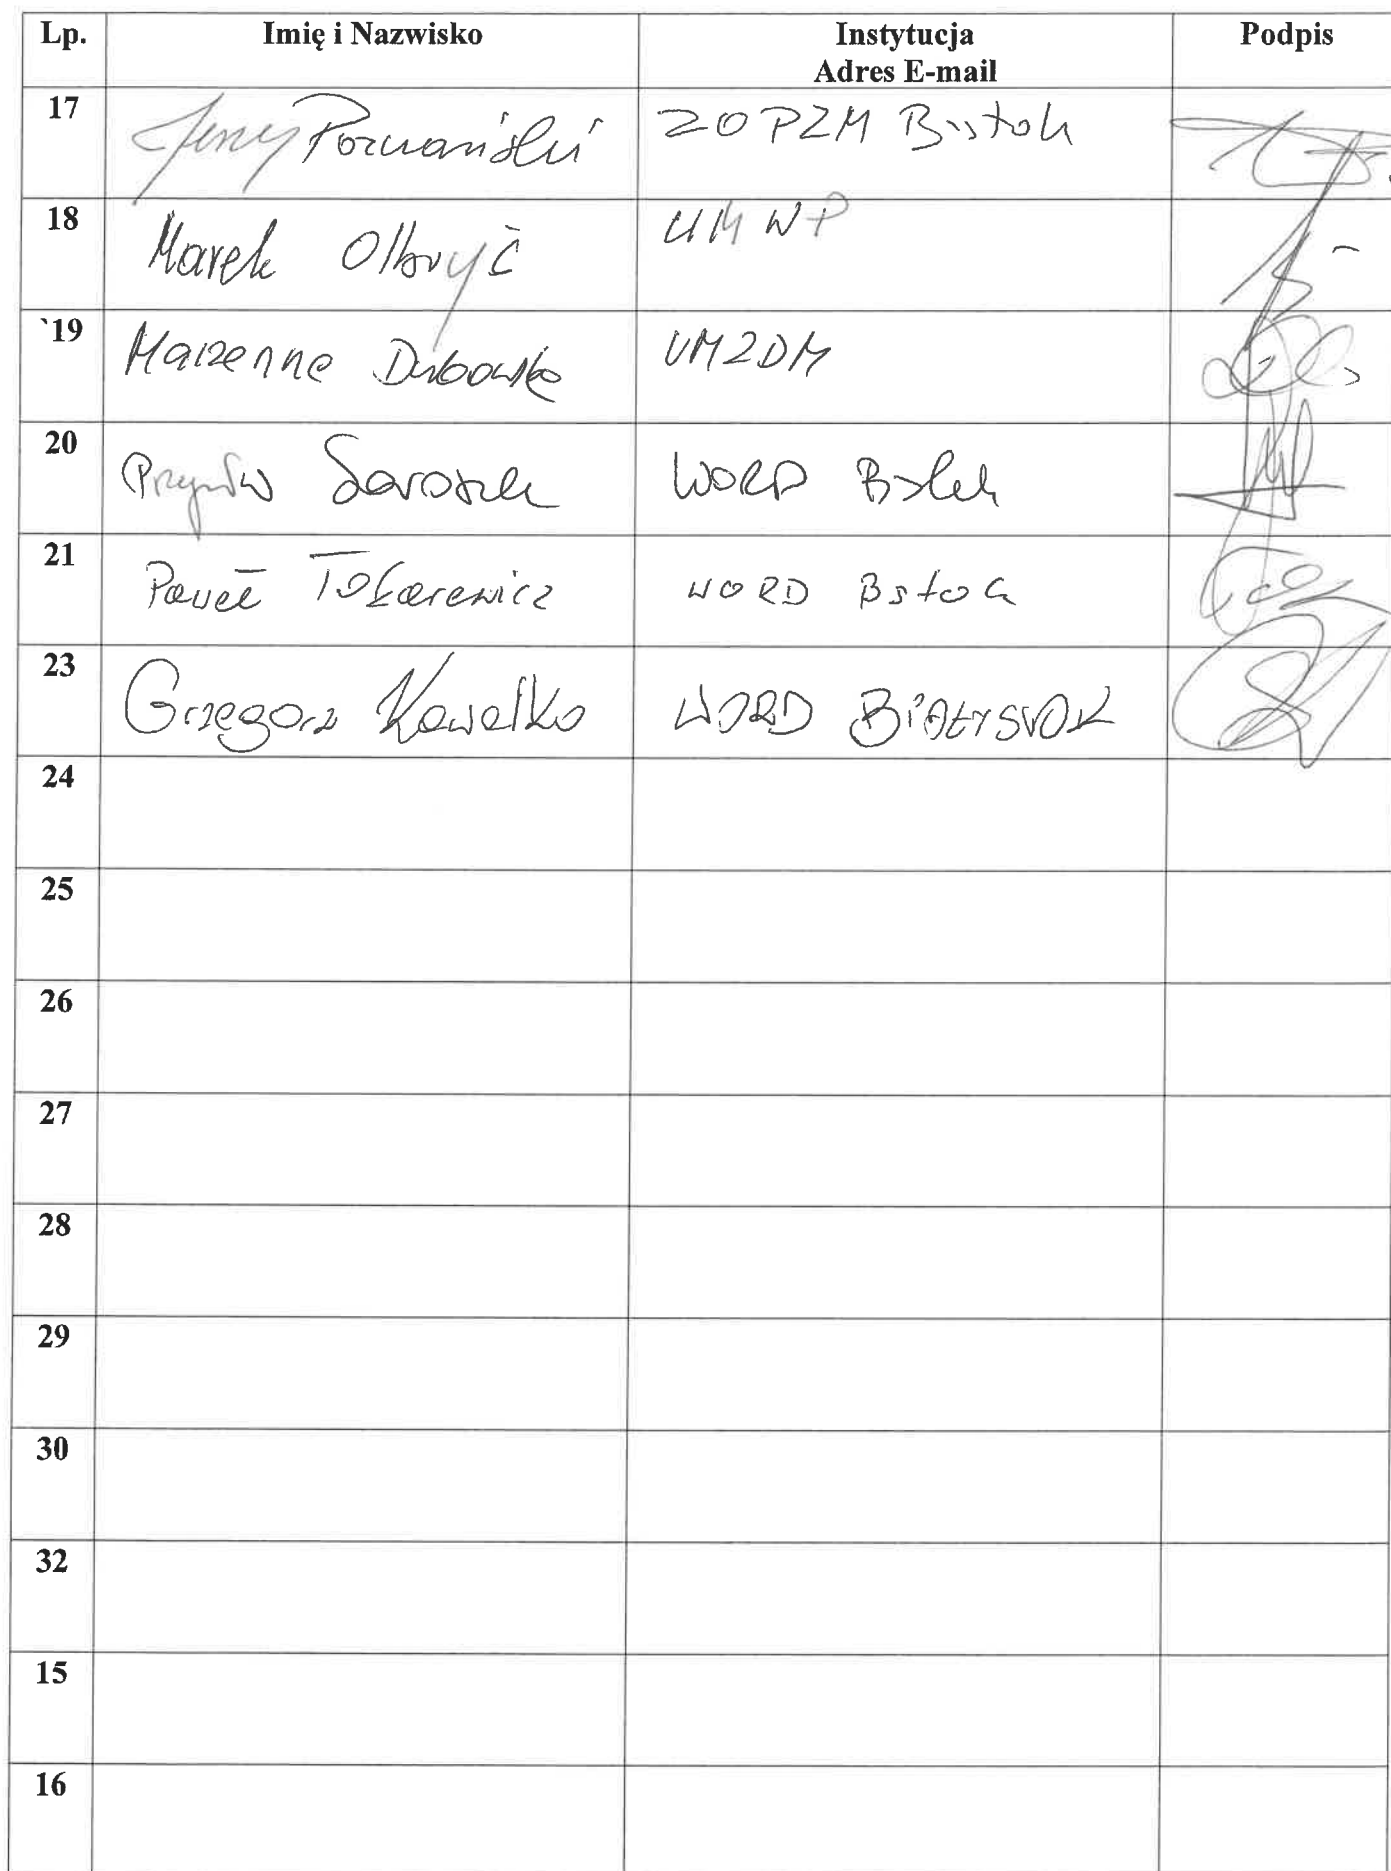 Lp. Imię i Nazwisko Instytucja Podpis
Adres E-mail
17 Jerzy Poznański ZO PZM Bstok
18 Marek Olbryś UMWP
`19 Marzenna Dąbowska UMZDM
20 Sarosiek WORD
21 Paweł Tokarewicz WORD Bstok
23 Grzegorz Kowalko WORD Białystok
24
25
26
27
28
29
30
32
15
16